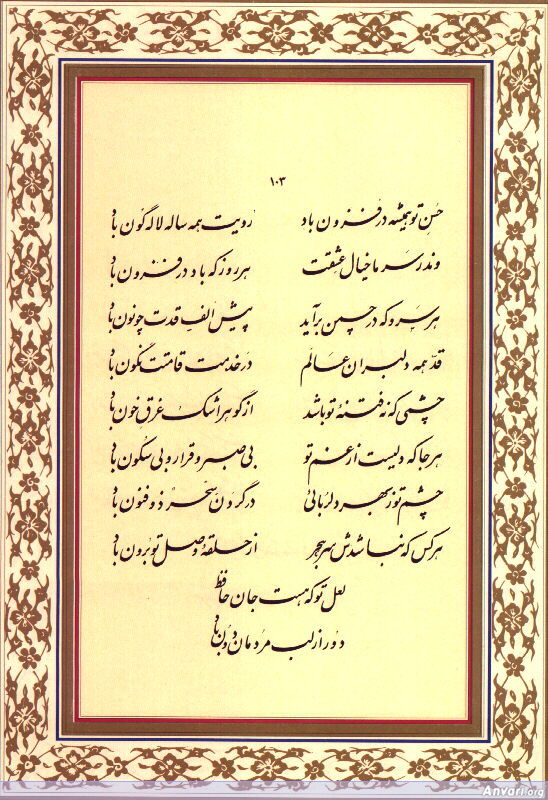 ۱۰۳
حسن تو همیشه در فزون باد رویت همه ساله لاله گون باد
وندر سر ما خیال عشقت هر روز که باد در فزون باد
هر سرو که در چمن برآید پیش الف قدت چو نون باد
قد همه دلبران عالم در خدمت قامتت نگون باد
چشمی که نه فتنهٔ تو باشد از گوهر اشک غرق خون باد
هر جا که دلیست از غم تو بی صبر و قرار و بی سکون باد
چشم تو ز بهر دلربائی در کردن سحر ذوفنون باد
هر کس که نباشدش سر هجر از حلقهٔ وصل تو برون باد
لعل تو که هست جان حافظ
دور از لب مردمان دون باد
Anvari.org